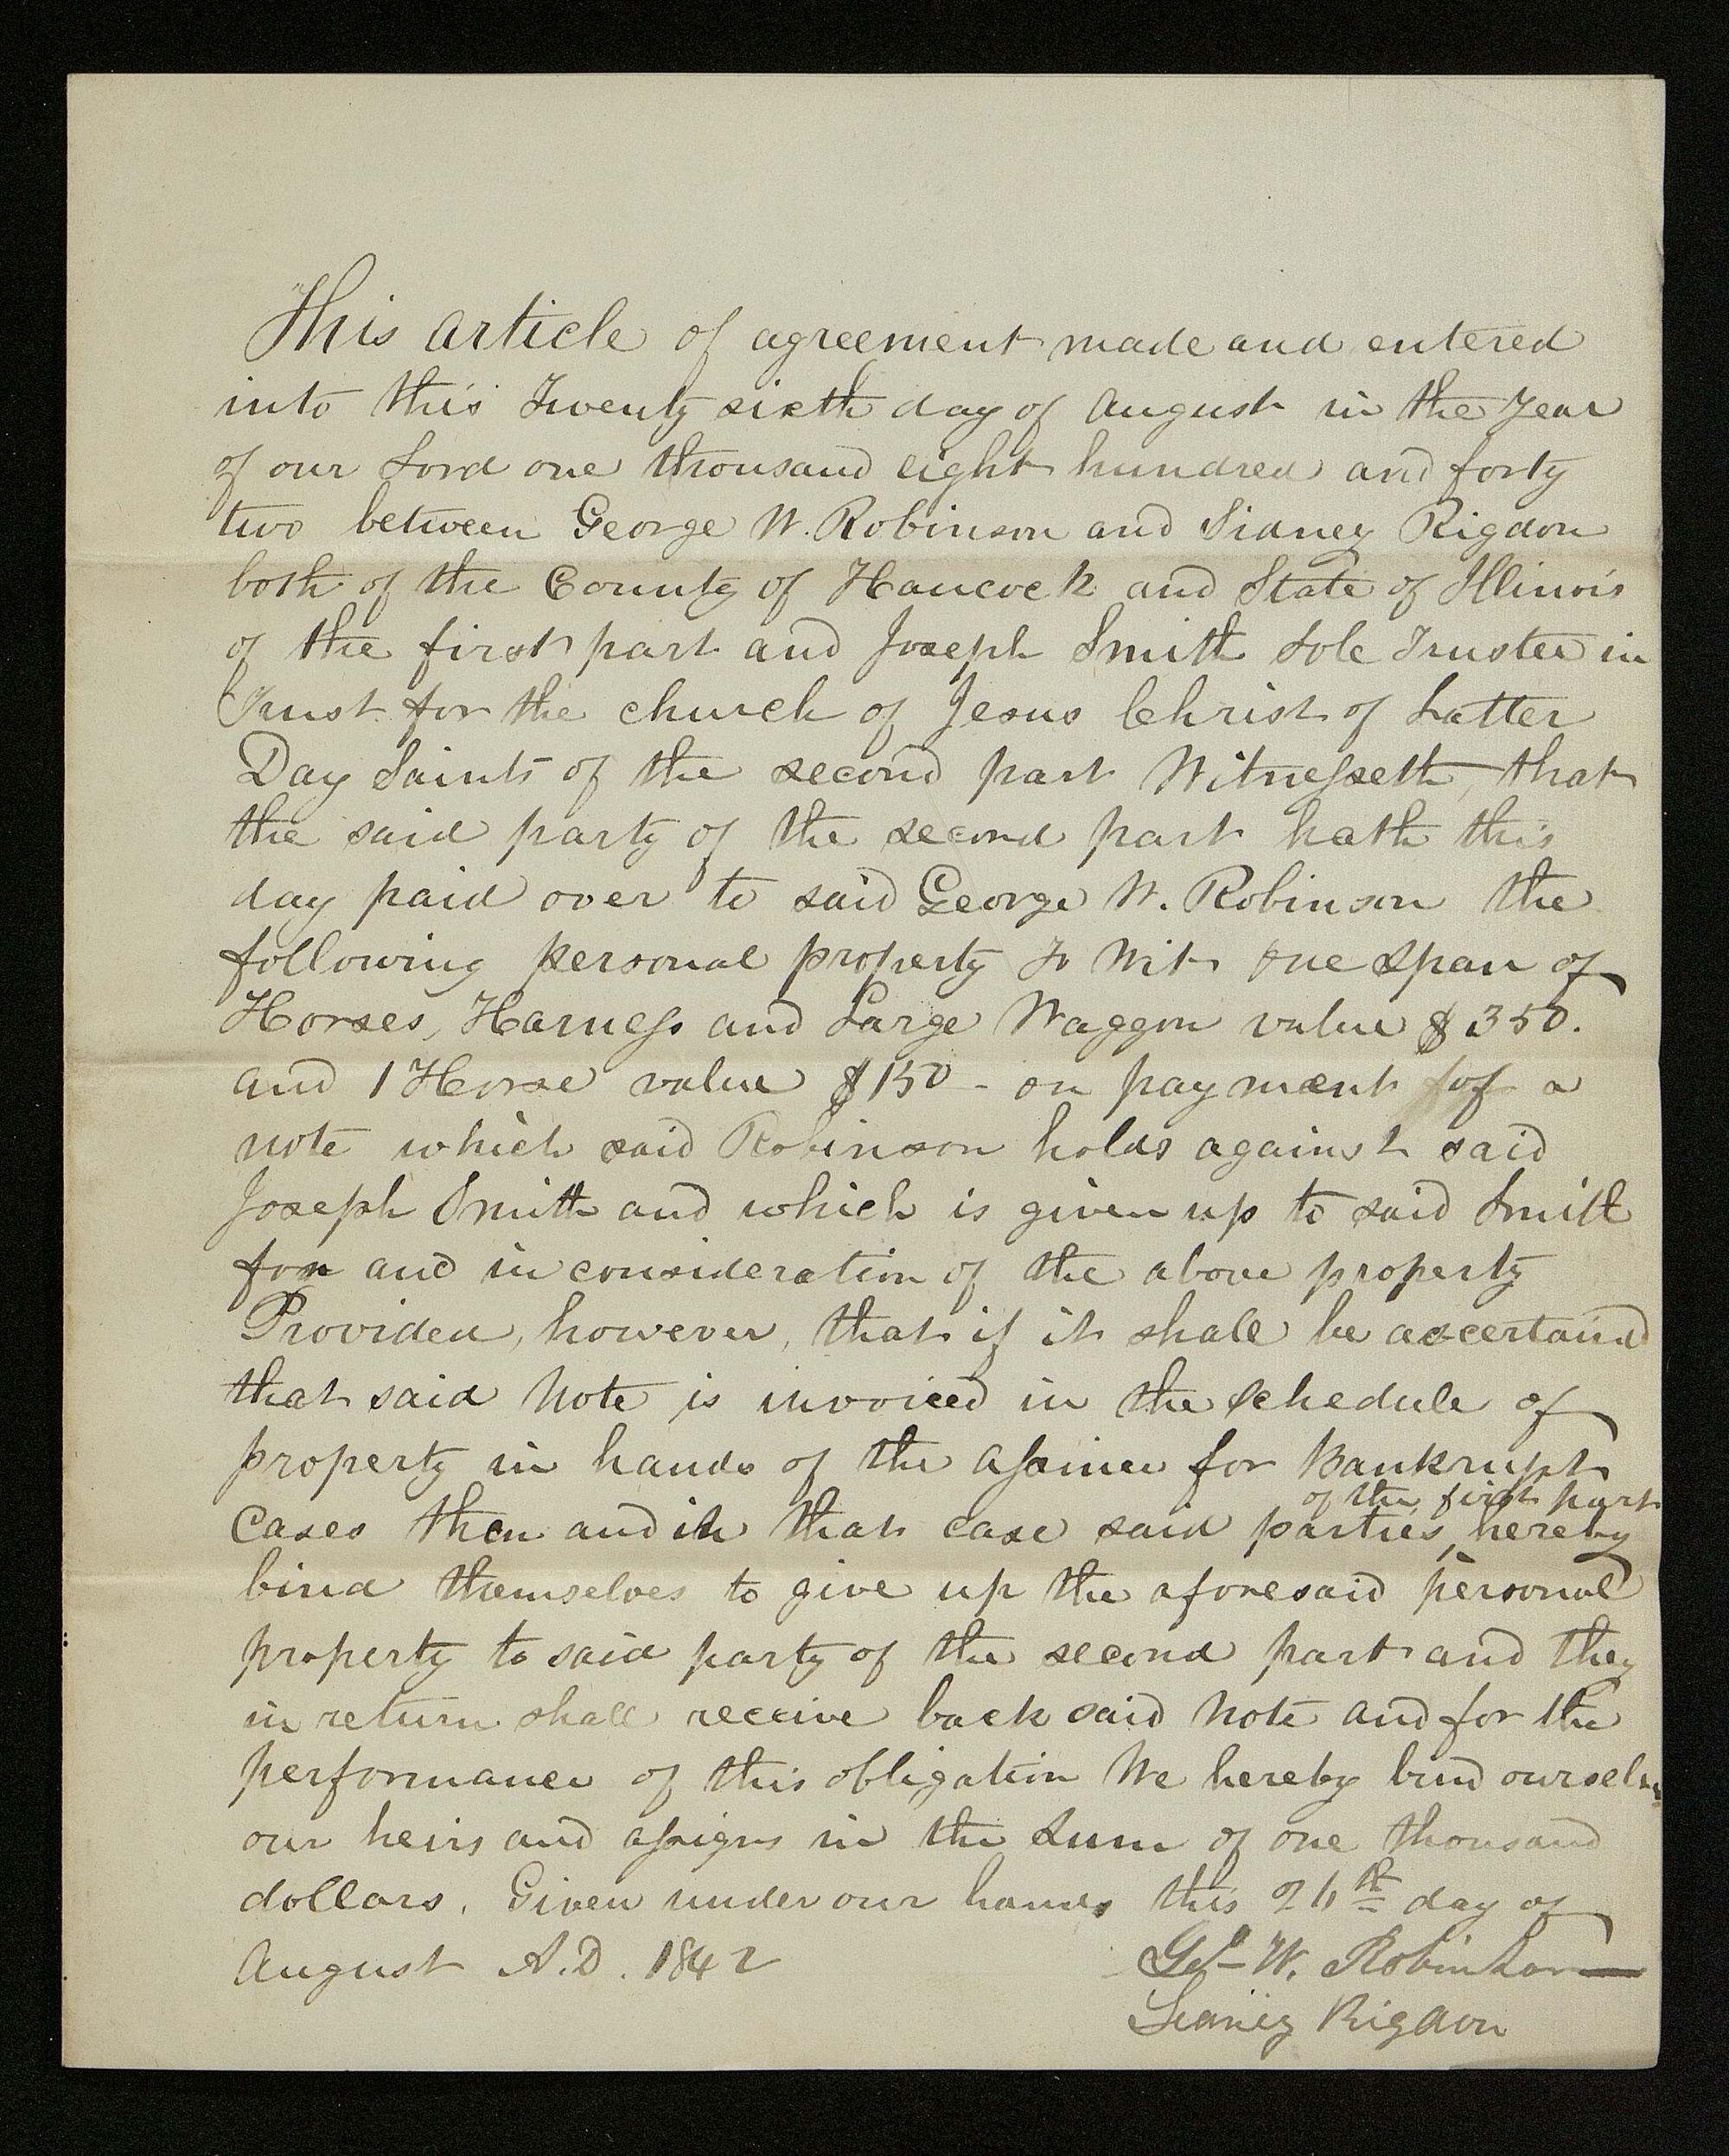 This article of agreement made and entered
into this Twenty sixth day of August in the Year
of our Lord one thousand eight hundred and forty
two between George W. Robinson and Sidney Rigdon
both of the County of Hancock and State of Illinois
of the first part and Joseph Smith Sole Trustee in
Trust for the church of Jesus Christ of Latter
Day Saints of the second part Witnesseth, that
the said party of the second part hath this
day paid over to said George W. Robinson the
following personal property To Wit one span of
Horses, Harness and Large Waggon value $350.
and 1 Horse value $150 - on payment of a
note which said Robinson holds against said
Joseph Smith and which is given up to said Smith
for and in consideration of the above property
Provided, however, that if it shall be ascertaind
that said Note is invoiced in the schedule of
property in hands of the assinee for Bankrupt
of the first part
Cases then and in that case said parties, hereby
bind themselves to give up the aforesaid personal
property to said party of the second part and they
in return shall receive back said Note and for the
performance of this obligation We hereby bind ourselves
our heirs and assigns in the Sum of one thousand
dollars. Given under our hands this 26th day of
August A.D. 1842
Geo- W. Robinson
Sidney Rigdon